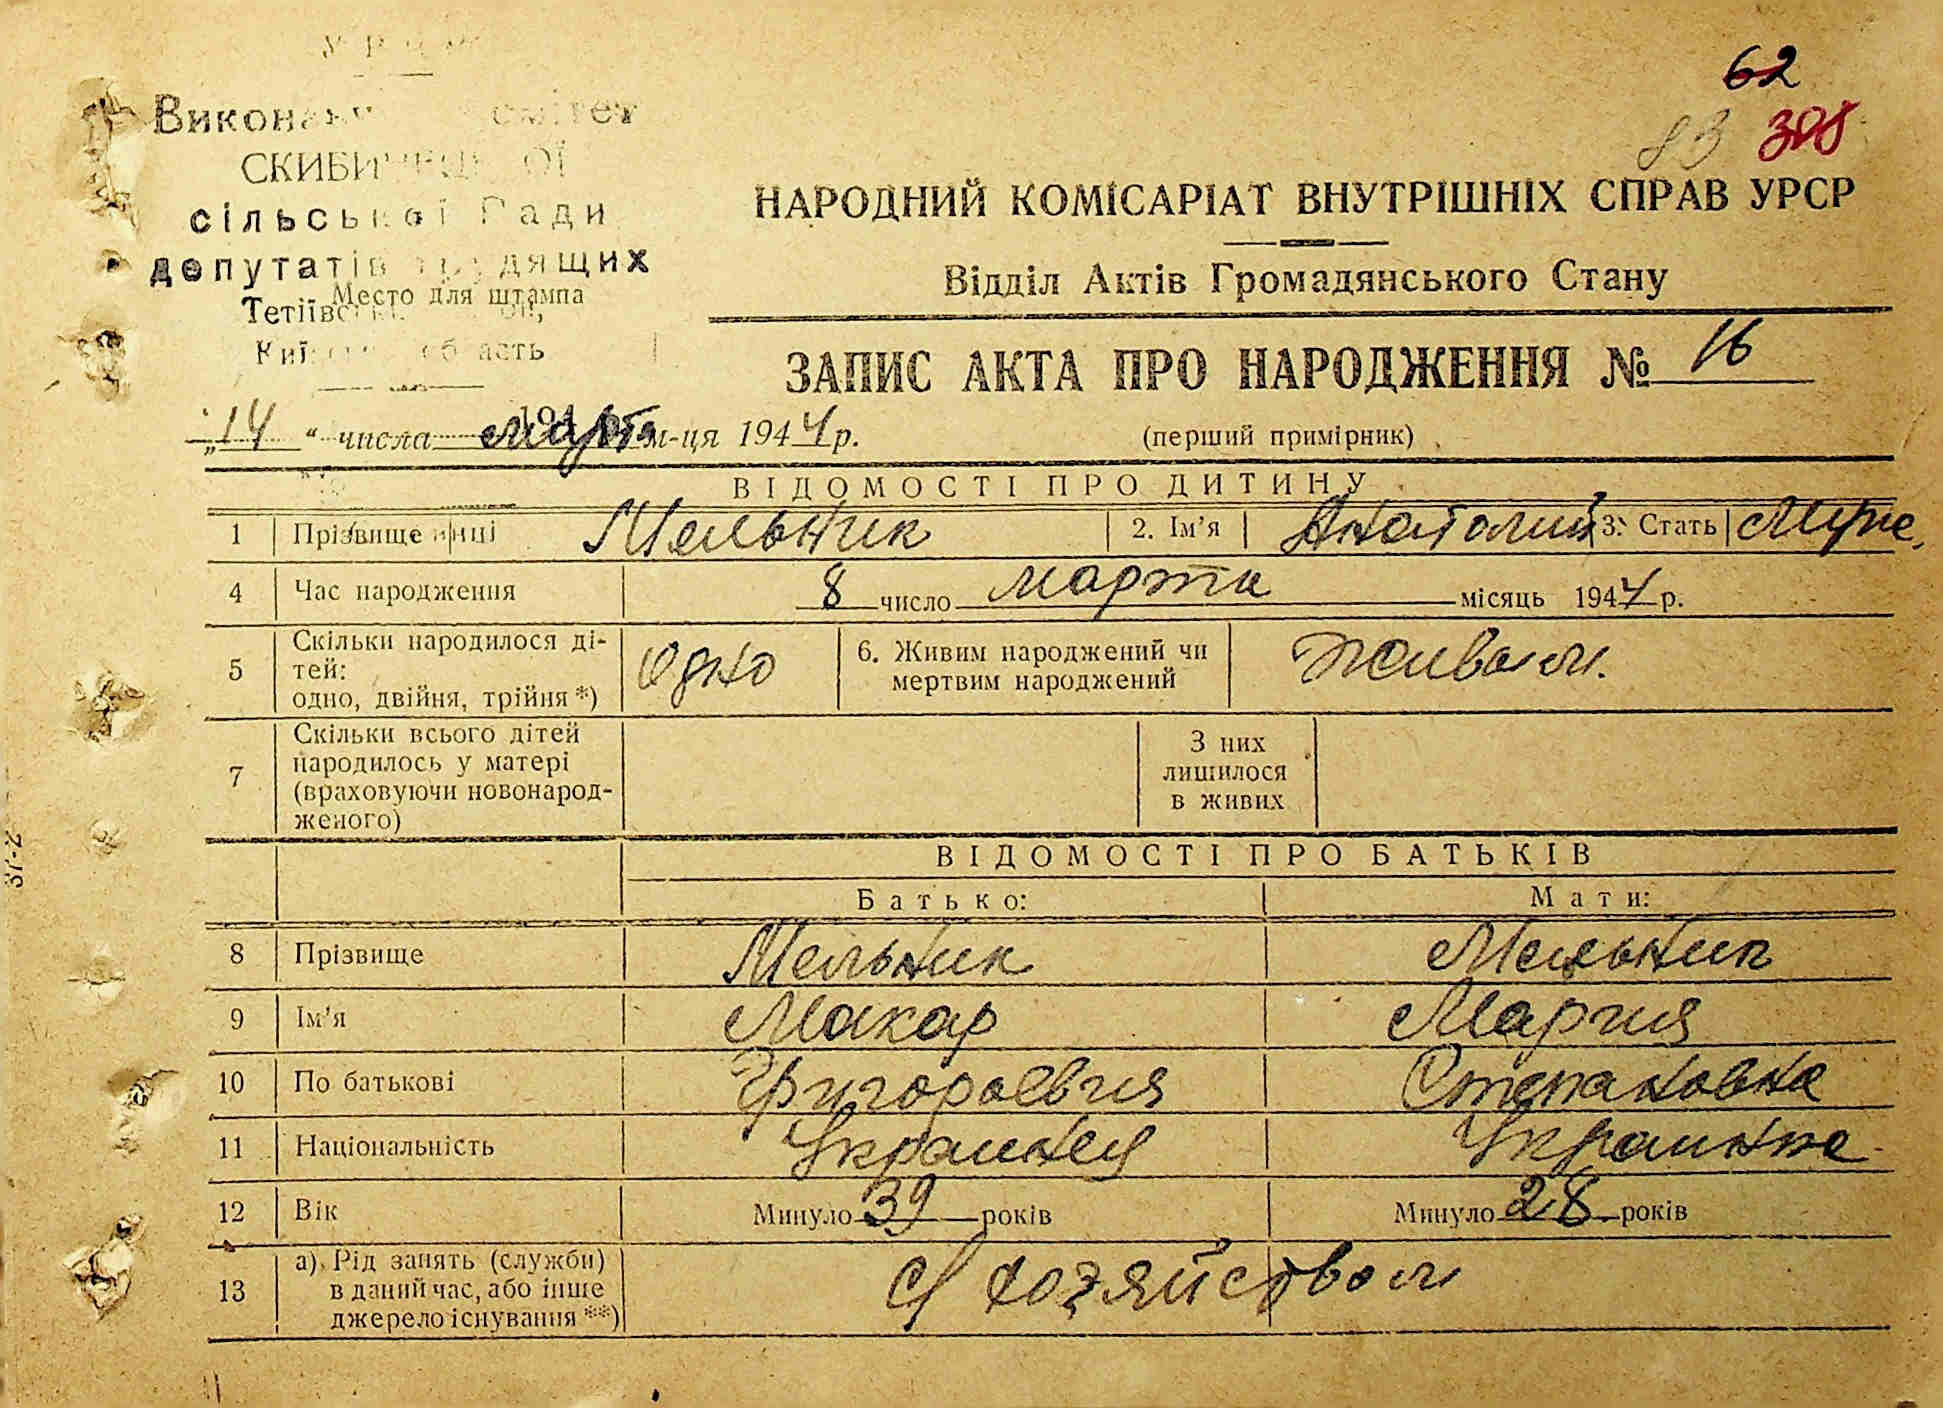 62
83 308
Виконавчий комітет
СКИБИНЕЦЬКОЇ
сільської Ради
депутатів трудящих
Место для штампа
Тетіївського
Київська область
НАРОДНИЙ КОМІСАРІАТ ВНУТРІШНІХ СПРАВ УРСР
Відділ Актів Громадянського Стану
ЗАПИС АКТА ПРО НАРОДЖЕННЯ № 16
„14“ числа марта м-ця 1944 р. (перший примірник)
ВІДОМОСТІ ПРО ДИТИНУ
1 Прізвище Мельник 2. Ім’я Анатолий 3. Стать Муже.
4 Час народження 8 число марта місяць 1944 р.
5 Скільки народилося ді-
тей:
одно, двійня, трійня *) Одно 6. Живим народжений чи
мертвим народжений Живым.
7 Скільки всього дітей
народилось у матері
(враховуючи новонарод-
женого) З них
лишилося
в живих
ВІДОМОСТІ ПРО БАТЬКІВ
Батько: Мати:
8 Прізвище Мельник Мельник
9 Ім’я Макар Мария
10 По батькові Григориевич Степановна
11 Національність Украинец Украинка
12 Вік Минуло 39 років Минуло 28 років
13 а) Рід занять (служби)
в даний час, або інше
джерело існування **) С/хозяйством
ЗГ-2